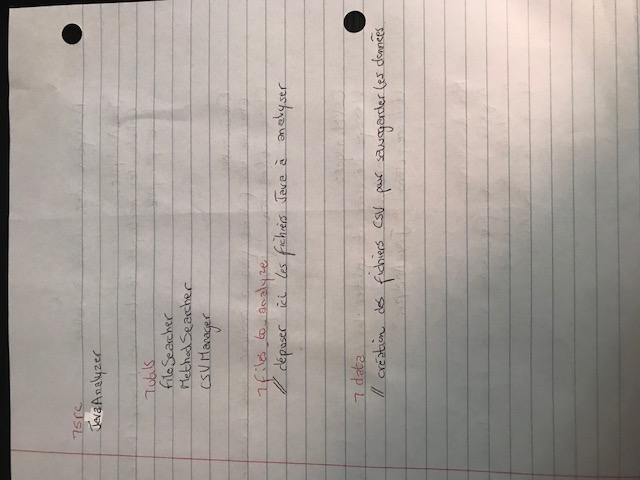 7src
JavaAnalyzer
7utils
fileSearcher
MethodSearcher
CSVManager
7files_to_analyze
// déposer ici les fichiers Java à analyser
7 data
// création des fichiers CSV pour sauvegarder les données